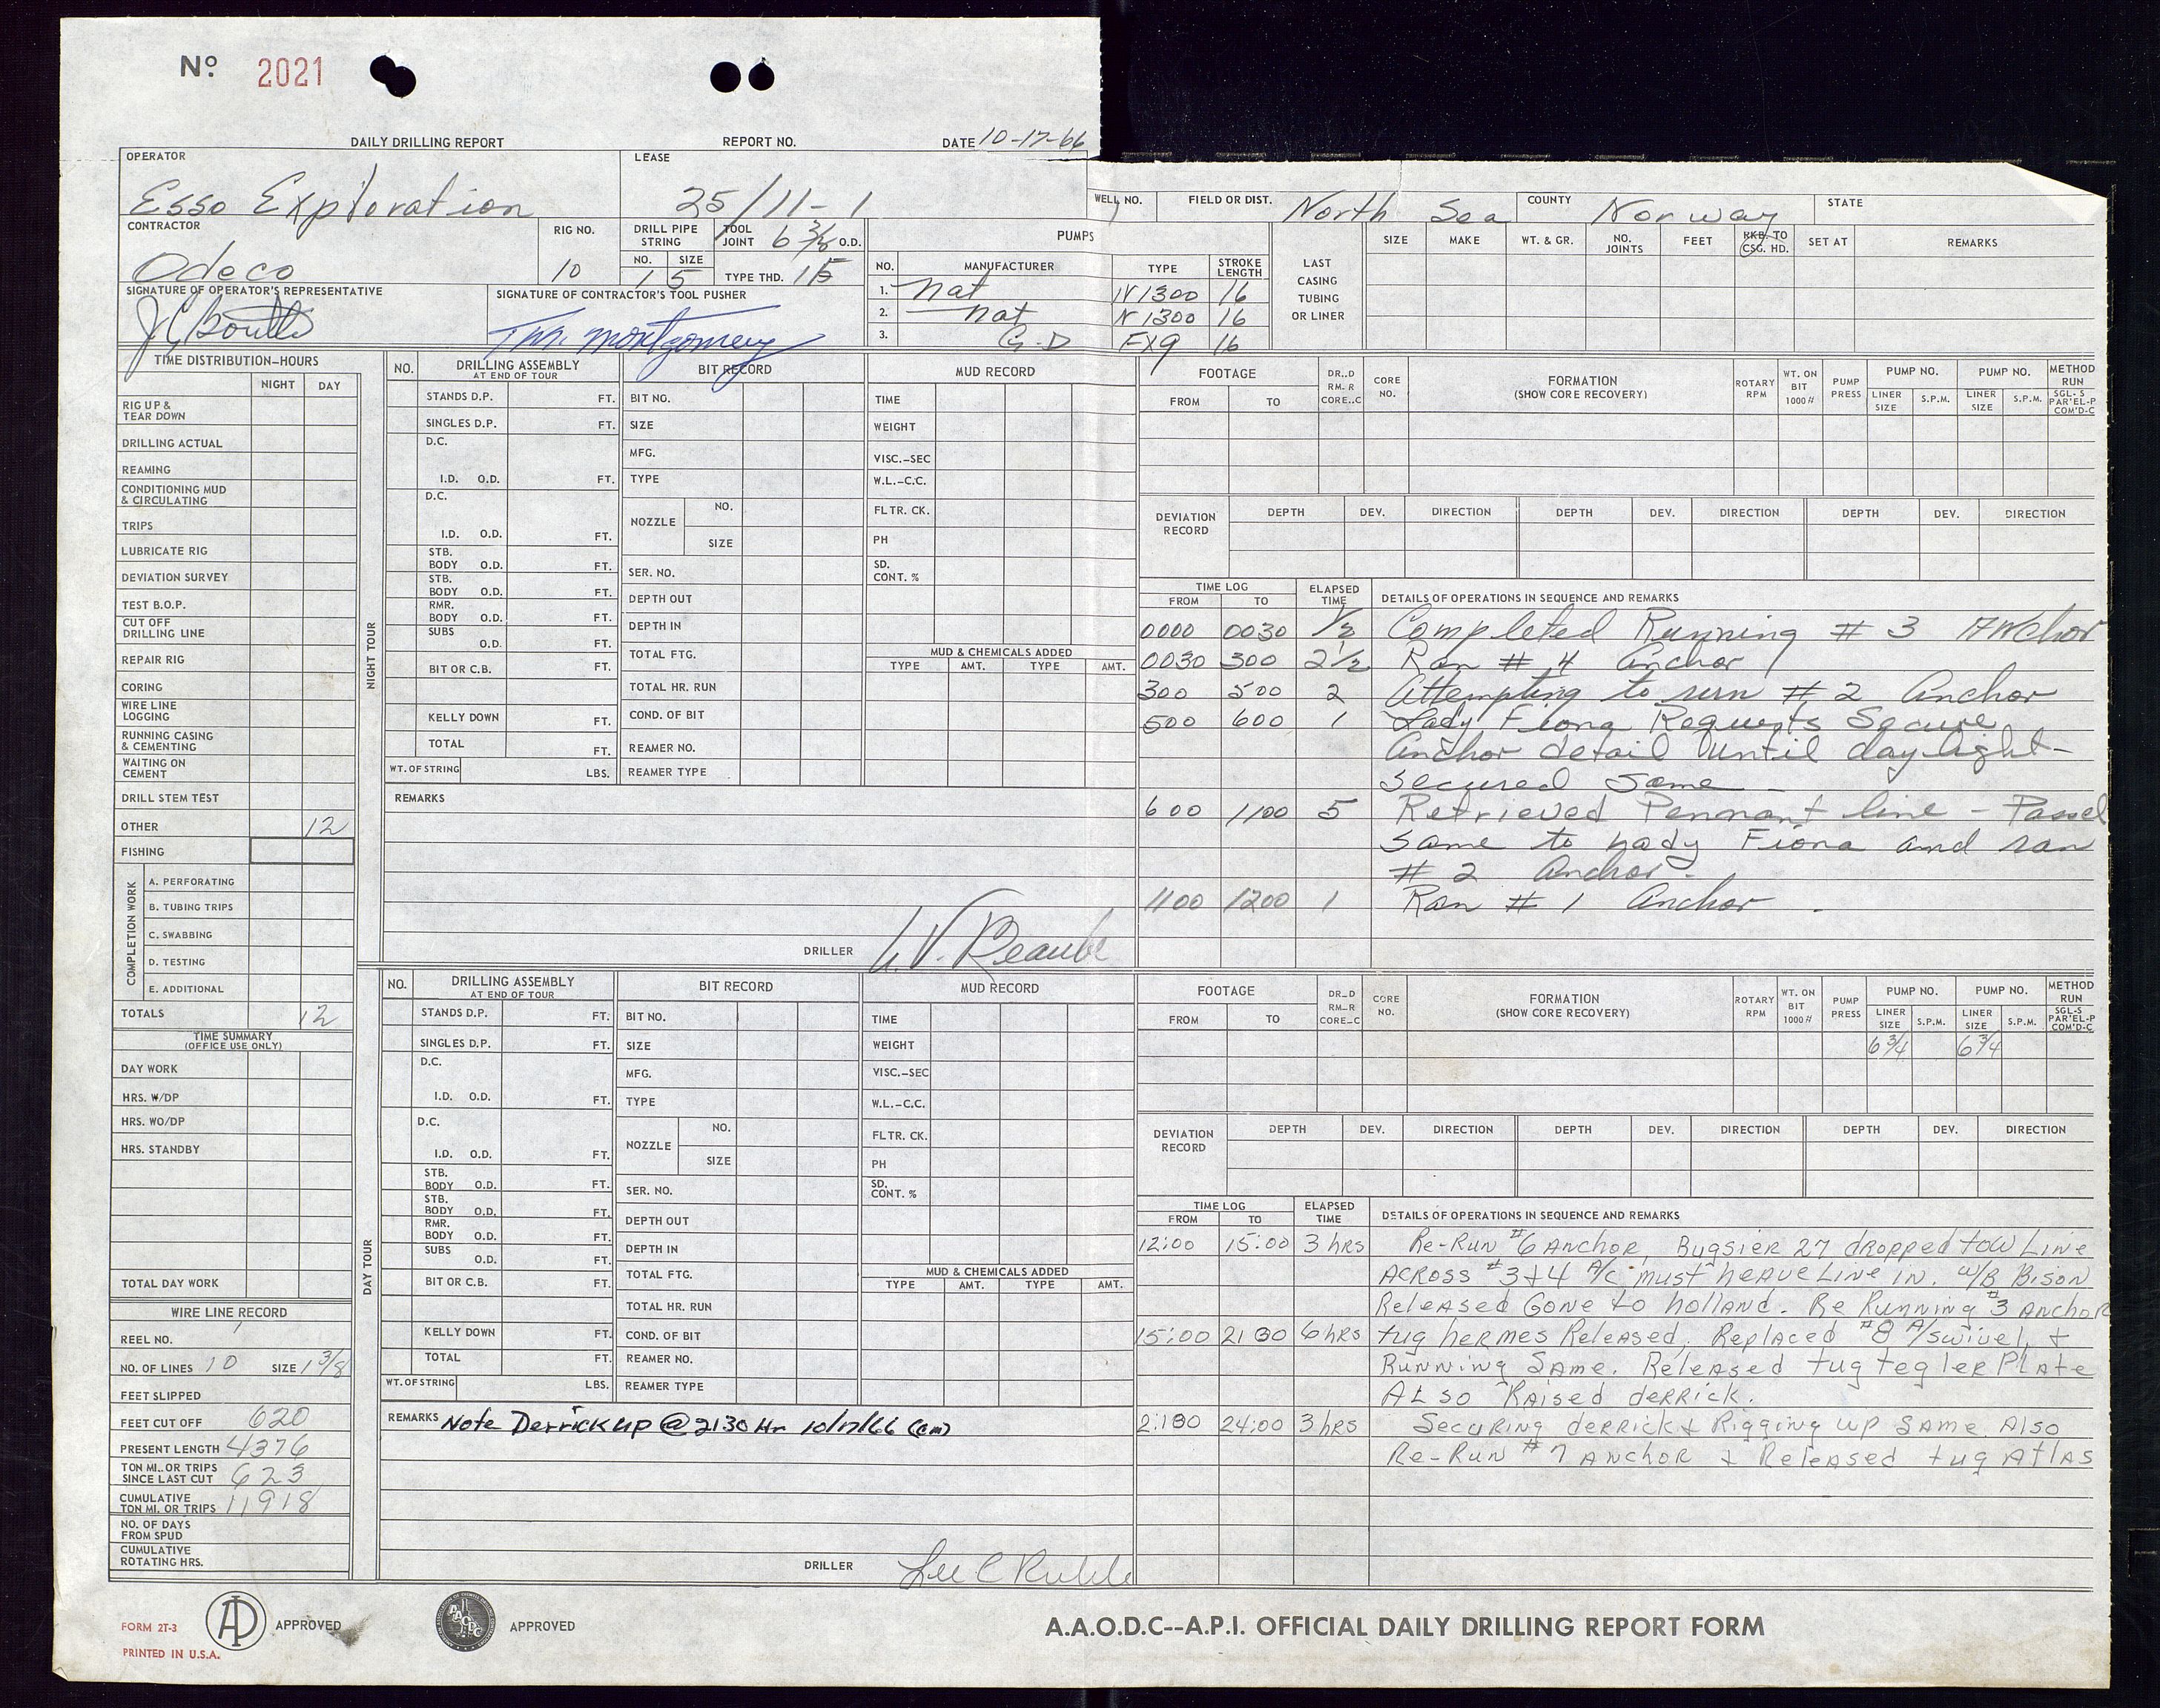 Nº 2021
DAILY DRILLING REPORT REPORT NO. DATE 10-17-66
OPERATOR LEASE
Esso Exploration 25/11-1
WELL NO. FIELD OR DIST. North Sea COUNTY Norway STATE
CONTRACTOR RIG NO. DRILL PIPE STRING TOOL JOINT O.D. PUMPS
Odeco 10 NO. SIZE 1 5 TYPE THD.
NO. MANUFACTURER TYPE STROKE LENGTH
1. Nat N 1300 16
2. Nat N 1300 16
3. G-D FX9 16
LAST CASING TUBING OR LINER
SIZE MAKE WT. & GR. NO. JOINTS FEET RKB. TO CSG. HD. SET AT REMARKS
SIGNATURE OF OPERATOR'S REPRESENTATIVE SIGNATURE OF CONTRACTOR'S TOOL PUSHER
Montgomery
TIME DISTRIBUTION-HOURS
NIGHT DAY
RIG UP & TEAR DOWN
DRILLING ACTUAL
REAMING
CONDITIONING MUD & CIRCULATING
TRIPS
LUBRICATE RIG
DEVIATION SURVEY
TEST B.O.P.
CUT OFF DRILLING LINE
REPAIR RIG
CORING
WIRE LINE LOGGING
RUNNING CASING & CEMENTING
WAITING ON CEMENT
DRILL STEM TEST
OTHER 12
FISHING
COMPLETION WORK
A. PERFORATING
B. TUBING TRIPS
C. SWABBING
D. TESTING
E. ADDITIONAL
TOTALS 12
TIME SUMMARY
(OFFICE USE ONLY)
DAY WORK
HRS. W/DP
HRS. WO/DP
HRS. STANDBY
TOTAL DAY WORK
WIRE LINE RECORD
REEL NO. 1
NO. OF LINES 10 SIZE 1 3/8
FEET SLIPPED
FEET CUT OFF 620
PRESENT LENGTH 4376
TON MI. OR TRIPS SINCE LAST CUT 623
CUMULATIVE TON MI. OR TRIPS 11918
NO. OF DAYS FROM SPUD
CUMULATIVE ROTATING HRS.
NIGHT TOUR
NO. DRILLING ASSEMBLY AT END OF TOUR BIT RECORD MUD RECORD
STANDS D.P. FT. BIT NO. TIME
SINGLES D.P. FT. SIZE WEIGHT
D.C. MFG. VISC.-SEC
I.D. O.D. FT. TYPE W.L.-C.C.
D.C. NOZZLE NO. FLTR. CK.
I.D. O.D. FT. SIZE PH
STB. BODY O.D. FT. SER. NO. SD. CONT. %
STB. BODY O.D. FT. DEPTH OUT
RMR. BODY O.D. FT. DEPTH IN
SUBS O.D. FT. TOTAL FTG. MUD & CHEMICALS ADDED
BIT OR C.B. FT. TOTAL HR. RUN TYPE AMT. TYPE AMT.
KELLY DOWN FT. COND. OF BIT
TOTAL FT. REAMER NO.
WT. OF STRING LBS. REAMER TYPE
REMARKS
DRILLER
FOOTAGE DR..D RM.R CORE..C CORE NO. FORMATION (SHOW CORE RECOVERY) ROTARY RPM WT. ON BIT 1000# PUMP PRESS PUMP NO. PUMP NO. METHOD RUN
FROM TO LINER SIZE S.P.M. LINER SIZE S.P.M. SGL-S PAR'EL-P COM'D-C
DEVIATION RECORD DEPTH DEV. DIRECTION DEPTH DEV. DIRECTION DEPTH DEV. DIRECTION
TIME LOG ELAPSED TIME DETAILS OF OPERATIONS IN SEQUENCE AND REMARKS
FROM TO
0000 0030 1/2 Completed Running # 3 Anchor
0030 300 2 1/2 Ran # 4 Anchor
300 500 2 Attempting to run # 2 Anchor
500 600 1 Lady Fiona Requests Secure
Anchor detail until daylight-
Secured Same -
600 1100 5 Retrieved Pennant line - Passed
Same to Lady Fiona and ran
# 2 Anchor.
1100 1200 1 Ran # 1 Anchor.
DAY TOUR
NO. DRILLING ASSEMBLY AT END OF TOUR BIT RECORD MUD RECORD
STANDS D.P. FT. BIT NO. TIME
SINGLES D.P. FT. SIZE WEIGHT
D.C. MFG. VISC.-SEC
I.D. O.D. FT. TYPE W.L.-C.C.
D.C. NOZZLE NO. FLTR. CK.
I.D. O.D. FT. SIZE PH
STB. BODY O.D. FT. SER. NO. SD. CONT. %
STB. BODY O.D. FT. DEPTH OUT
RMR. BODY O.D. FT. DEPTH IN
SUBS O.D. FT. TOTAL FTG. MUD & CHEMICALS ADDED
BIT OR C.B. FT. TOTAL HR. RUN TYPE AMT. TYPE AMT.
KELLY DOWN FT. COND. OF BIT
TOTAL FT. REAMER NO.
WT. OF STRING LBS. REAMER TYPE
REMARKS Note Derrick up @ 2130 Hr 10/17/66 (cm)
DRILLER
FOOTAGE DR..D RM-R CORE..C CORE NO. FORMATION (SHOW CORE RECOVERY) ROTARY RPM WT. ON BIT 1000# PUMP PRESS PUMP NO. PUMP NO. METHOD RUN
FROM TO LINER SIZE S.P.M. LINER SIZE S.P.M. SGL-S PAR'EL-P COM'D-C
6 3/4 6 3/4
DEVIATION RECORD DEPTH DEV. DIRECTION DEPTH DEV. DIRECTION DEPTH DEV. DIRECTION
TIME LOG ELAPSED TIME DETAILS OF OPERATIONS IN SEQUENCE AND REMARKS
FROM TO
12:00 15:00 3 hRS Re-Run #6 Anchor, Bugsier 27 dropped tow Line
Across #3 & 4 A/c must heave Line in. w/B Bison
Released Gone to holland. Re Running #3 Anchor
15:00 2130 6 hRS tug hermes Released, Replaced #8 A/swivel, &
Running Same. Released tug tegler Plate
Also Raised derrick.
2:130 24:00 3 hRS Securing derrick & Rigging up Same. Also
Re-Run #7 Anchor & Released tug Atlas
FORM 2T-3
PRINTED IN U.S.A.
API APPROVED
AAODC APPROVED
A.A.O.D.C--A.P.I. OFFICIAL DAILY DRILLING REPORT FORM